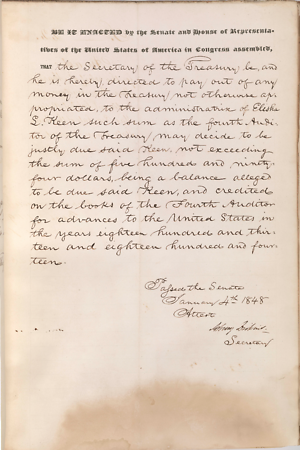 BE IT ENACTED by the Senate and House of Representa-
tives of the United States of America in Congress assembled,
THAT the Secretary of the Treasury be, and
he is hereby directed to pay out of any
money in the Treasury not otherwise ap-
propriated, to the administratrix of Elisha
L. Keen such sum as the fourth Audi-
tor of the Treasury may decide to be
justly due said Keen, not exceeding
the sum of five hundred and ninety
four dollars, being a balance alleged
to be due said Keen, and credited
on the books of the Fourth Auditor
for advances to the United States in
the years eighteen hundred and thir-
teen and eighteen hundred and four-
teen.
Passed the Senate
January 4th 1848
Attest
Secretary